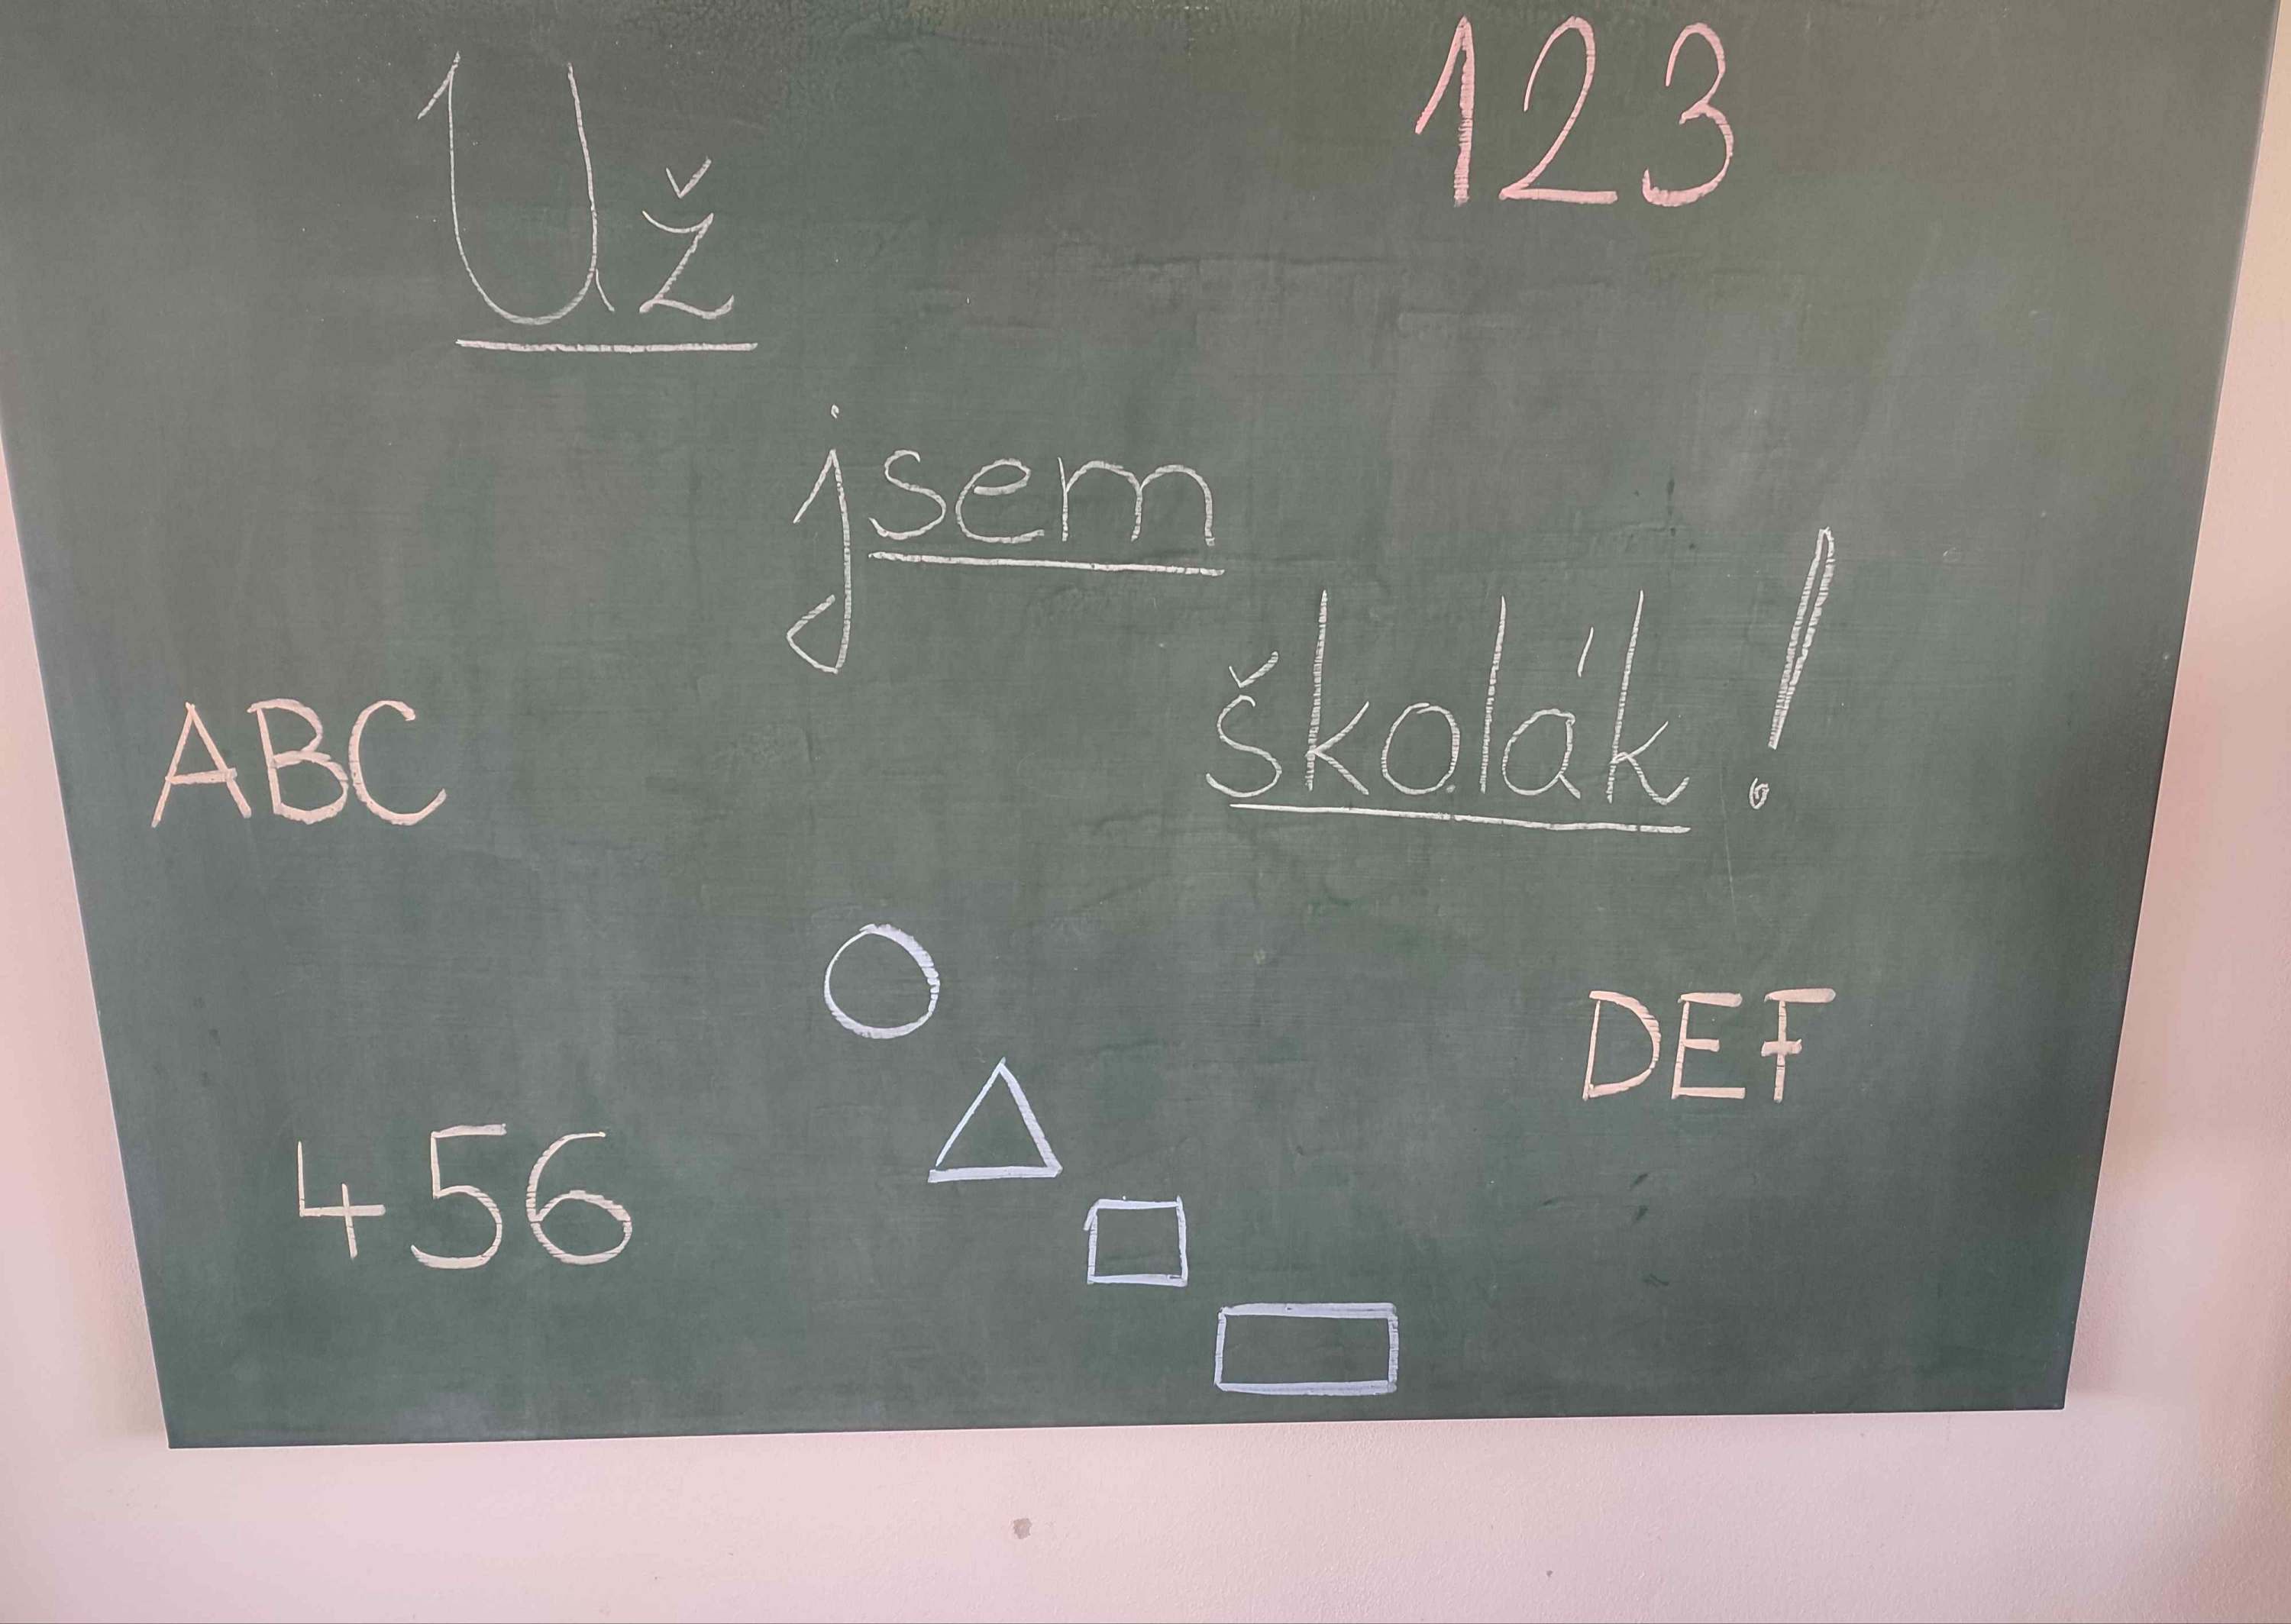 123
Už
jsem
školák!
ABC
DEF
456